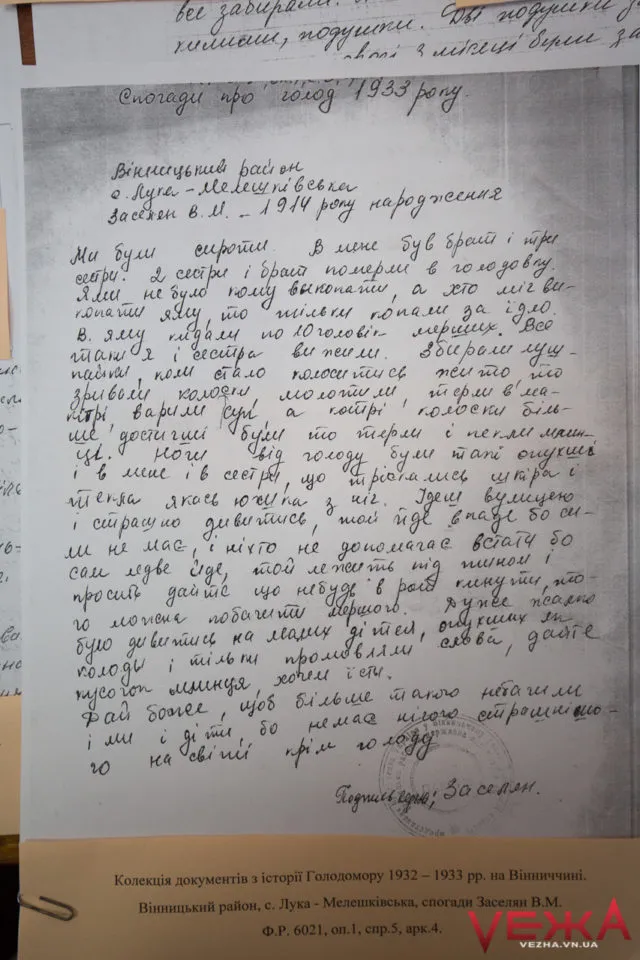 все забирали.
килими, подушки. Дві подушки
з місяці були за
Спогади про голод 1933 року.
Вінницький район
с. Лука-Мелешківська
Заселян В.М. – 1914 року народження
Ми були сироти. В мене був брат і три
сестри. 2 сестри і брат померли в голодовку.
Ями не було кому выкопати, а хто міг ви-
копати яму, то тільки копали за їдло.
В яму кидали по 10 головік мерших. Все
таки я і сестра вижили. Збирали луш-
пайки, коли стало колоситись жито, то
зривали колоски, молотили, терли в ма-
кітрі, варили суп, а котрі колоски біль-
ше достигші були то терли і пекли млин-
ці. Ноги від голоду були такі опухші
і в мене і в сестри, що тріскались шкіра і
текла якась южка з ніг. Ідеш вулицею
і страшно дивитись, той йде впаде бо си-
ли не має, і ніхто не допомагає встати бо
сам ледве йде, той лежить під тином і
просить дайте що небудь в рот кинути, то-
го можна побачити мершого. Дуже жалко
було дивитись на малих дітей, опухших як
колоды і тільки промовляли слова, дайте
кусочок млинця, хочем їсти.
Дай боже, щоб більше такого небачили
і ми і діти, бо немає нічого страшнішо-
го на світі крім голоду
Заселян.
Колекція документів з історії Голодомору 1932 – 1933 рр. на Вінниччині.
Вінницький район, с. Лука - Мелешківська, спогади Заселян В.М.
Ф.Р. 6021, оп.1, спр.5, арк.4.
VЕЖА
VEZHA.VN.UA